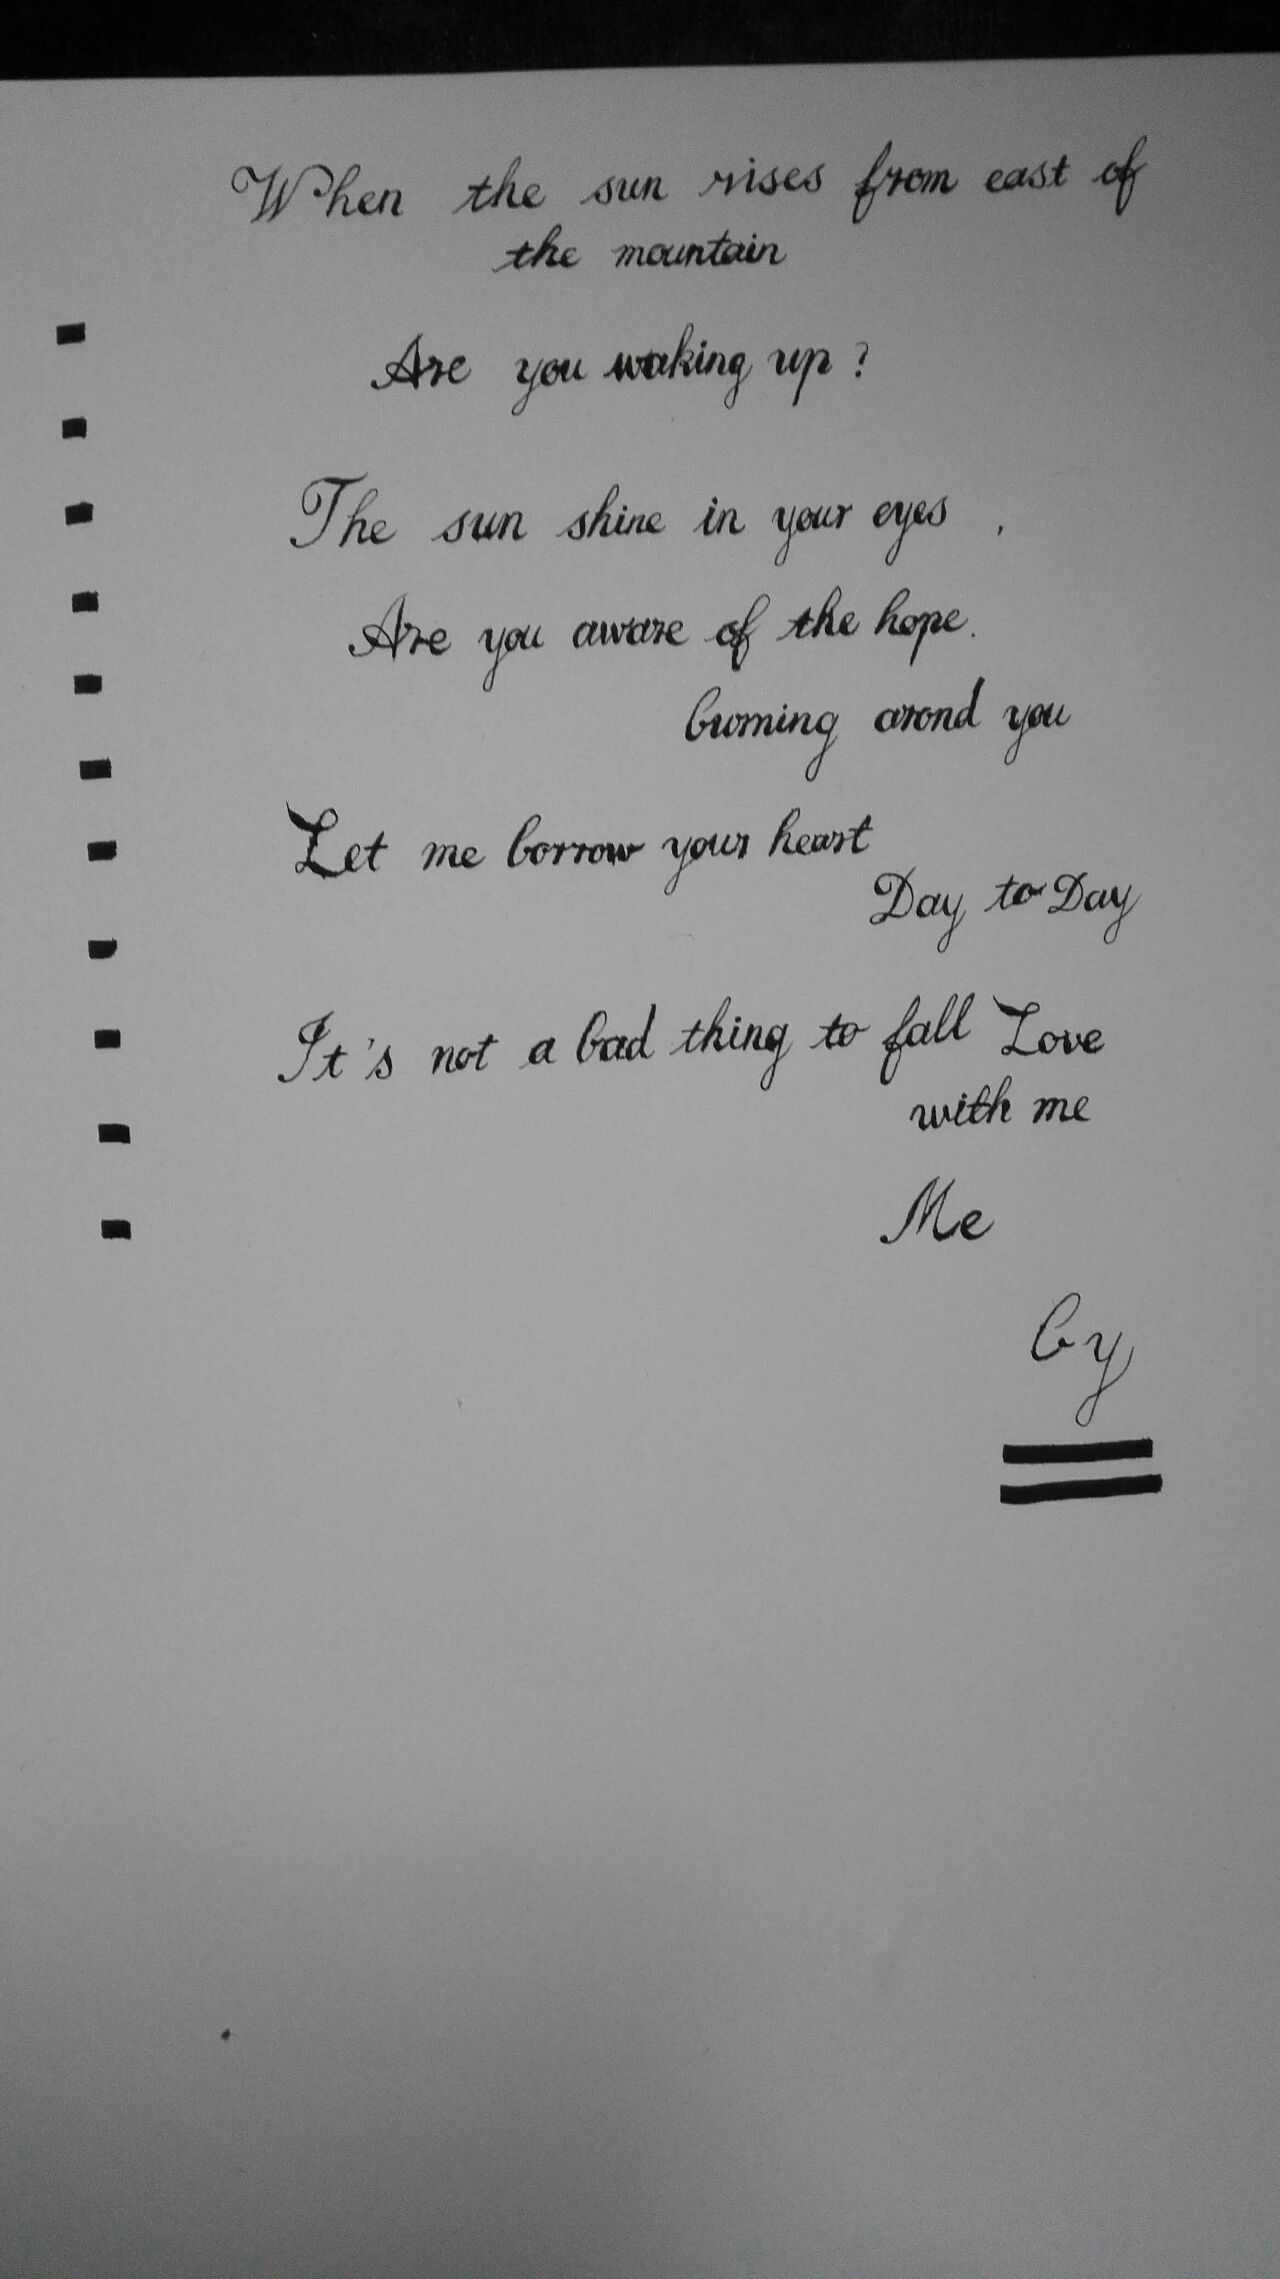 When the sun rises from east of
the mountain
Are you waking up?
The sun shine in your eyes,
Are you aware of the hope.
burning arond you
Let me borrow your heart
Day to Day
It's not a bad thing to fall Love
with me
Me
by